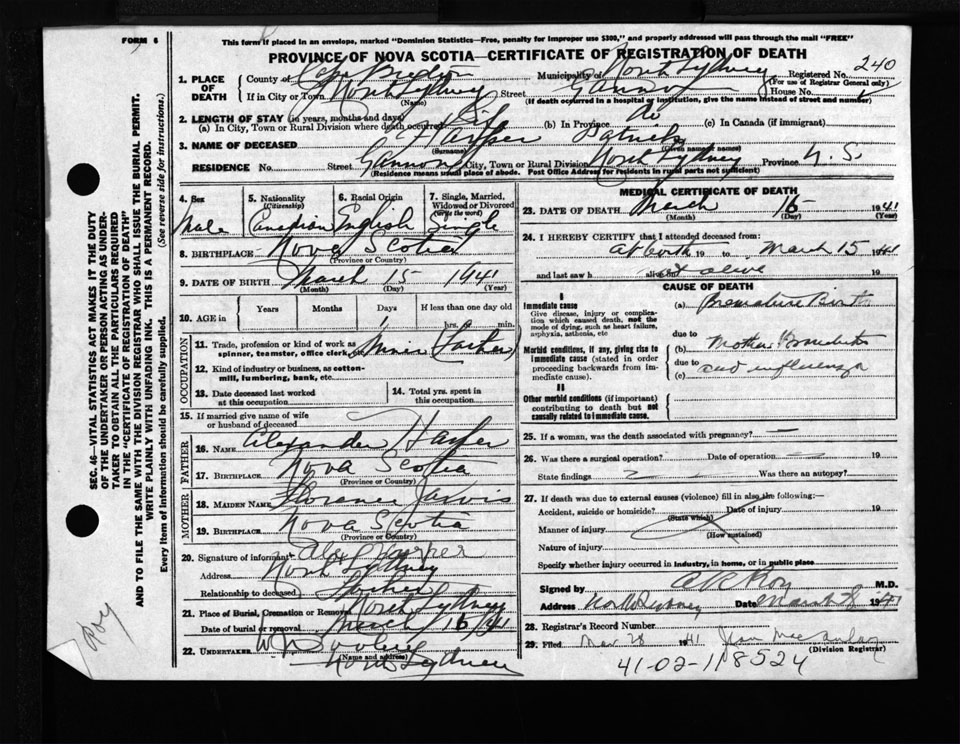 FORM 6
This form if placed in an envelope, marked "Dominion Statistics—Free, penalty for improper use $300," and properly addressed will pass through the mail "FREE"
PROVINCE OF NOVA SCOTIA—CERTIFICATE OF REGISTRATION OF DEATH
240
1. PLACE OF DEATH County of Cape Breton Municipality of North Sydney Registered No.
(For use of Registrar General only)
If in City or Town North Sydney Street Gannon House No.
(Name) (If death occurred in a hospital or institution, give the name instead of street and number)
2. LENGTH OF STAY (in years, months and days)
(a) In City, Town or Rural Division where death occurred (b) In Province (c) In Canada (if immigrant)
3. NAME OF DECEASED Harper
(Surname) (Given name or names)
RESIDENCE No. Street Gannon City, Town or Rural Division North Sydney Province N.S.
(Residence means usual place of abode. Post Office Address for residents in rural parts not sufficient)
4. Sex
Male
5. Nationality
(Citizenship)
Canadian
6. Racial Origin
English
7. Single, Married, Widowed or Divorced
(Write the word)
Single
8. BIRTHPLACE Nova Scotia
(Province or Country)
9. DATE OF BIRTH March 15 1941
(Month) (Day) (Year)
10. AGE in Years Months Days H less than one day old
1 hrs. min.
OCCUPATION
11. Trade, profession or kind of work as spinner, teamster, office clerk, etc. (Father)
12. Kind of industry or business, as cotton-mill, lumbering, bank, etc.
13. Date deceased last worked at this occupation
14. Total yrs. spent in this occupation
15. If married give name of wife or husband of deceased
FATHER
16. NAME Alexander Harper
17. BIRTHPLACE Nova Scotia
(Province or Country)
MOTHER
18. MAIDEN NAME Florence Jarvis
19. BIRTHPLACE Nova Scotia
(Province or Country)
20. Signature of informant Alex Harper
Address North Sydney
Relationship to deceased Father
21. Place of Burial, Cremation or Removal North Sydney
Date of burial or removal March 16/41
22. UNDERTAKER
(Name and address)
North Sydney
MEDICAL CERTIFICATE OF DEATH
23. DATE OF DEATH March 16 1941
(Month) (Day) (Year)
24. I HEREBY CERTIFY that I attended deceased from
at birth 19 to March 15 1941
and last saw h alive on alive 19
CAUSE OF DEATH
I
Immediate cause
Give disease, injury or complication which caused death, not the mode of dying, such as heart failure, asphyxia, asthenia, etc
(a) Premature Birth
due to
Morbid conditions, if any, giving rise to immediate cause (stated in order proceeding backwards from immediate cause).
(b) Mother
due to
(c) and influenza
II
Other morbid conditions (if important) contributing to death but not causally related to immediate cause.
25. If a woman, was the death associated with pregnancy? —
26. Was there a surgical operation? Date of operation 19
State findings Was there an autopsy?
27. If death was due to external causes (violence) fill in also the following:—
Accident, suicide or homicide? Date of injury 19
(State which)
Manner of injury
(How sustained)
Nature of injury
Specify whether injury occurred in industry, in home, or in public place
Signed by A R Roy M.D.
Address North Sydney Date March 1941
28. Registrar's Record Number
29. Filed Mar 28 1941
(Division Registrar)
41-02-118524
SEC. 46—VITAL STATISTICS ACT MAKES IT THE DUTY
OF THE UNDERTAKER OR PERSON ACTING AS UNDER-
TAKER TO OBTAIN ALL THE PARTICULARS REQUIRED
IN THE "CERTIFICATE OF REGISTRATION OF DEATH"
AND TO FILE THE SAME WITH THE DIVISION REGISTRAR WHO SHALL ISSUE THE BURIAL PERMIT.
WRITE PLAINLY WITH UNFADING INK. THIS IS A PERMANENT RECORD.
Every item of information should be carefully supplied. (See reverse side for instructions.)
Roy